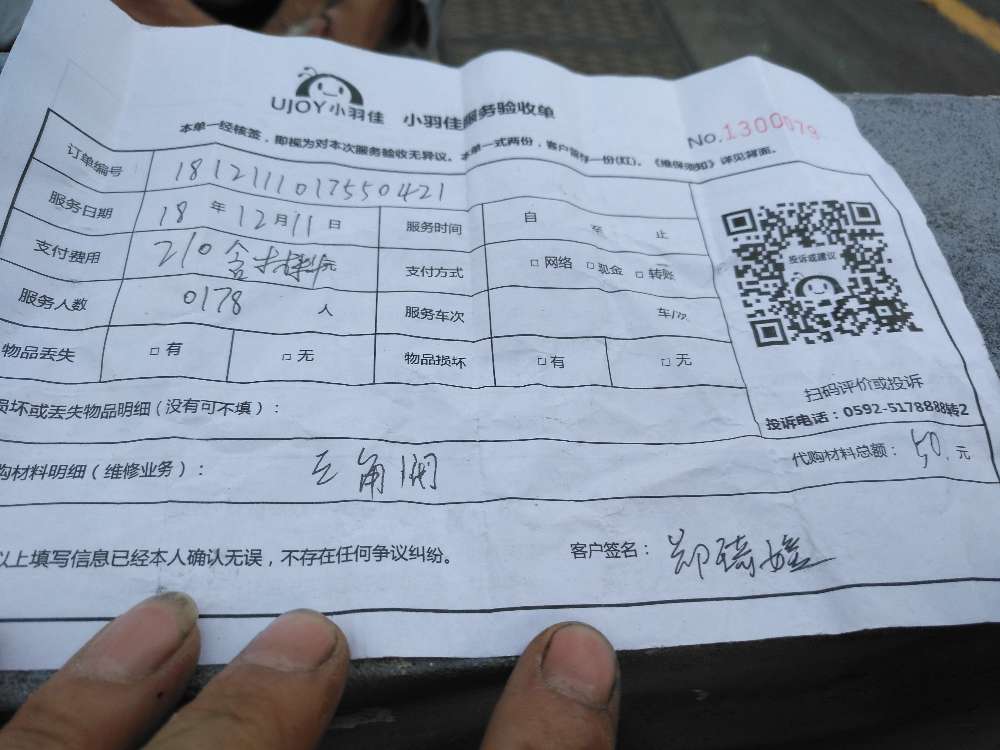 UJOY小羽佳 小羽佳服务验收单
No.1300079
本单一经核签，即视为对本次服务验收无异议。本单一式两份，客户留存一份(红)。《维保须知》详见背面。
订单编号 1812111017550421
服务日期 18 年 12 月 11 日 服务时间 自 至 止
支付费用 210 含材料 元 支付方式 □ 网络 □ 现金 □ 转账
服务人数 0178 人 服务车次 车/次
物品丢失 □ 有 □ 无 物品损坏 □ 有 □ 无
投诉或建议
扫码评价或投诉
投诉电话：0592-5178888转2
损坏或丢失物品明细（没有可不填）：
购材料明细（维修业务）： 三角阀 代购材料总额： 50. 元
以上填写信息已经本人确认无误，不存在任何争议纠纷。 客户签名：